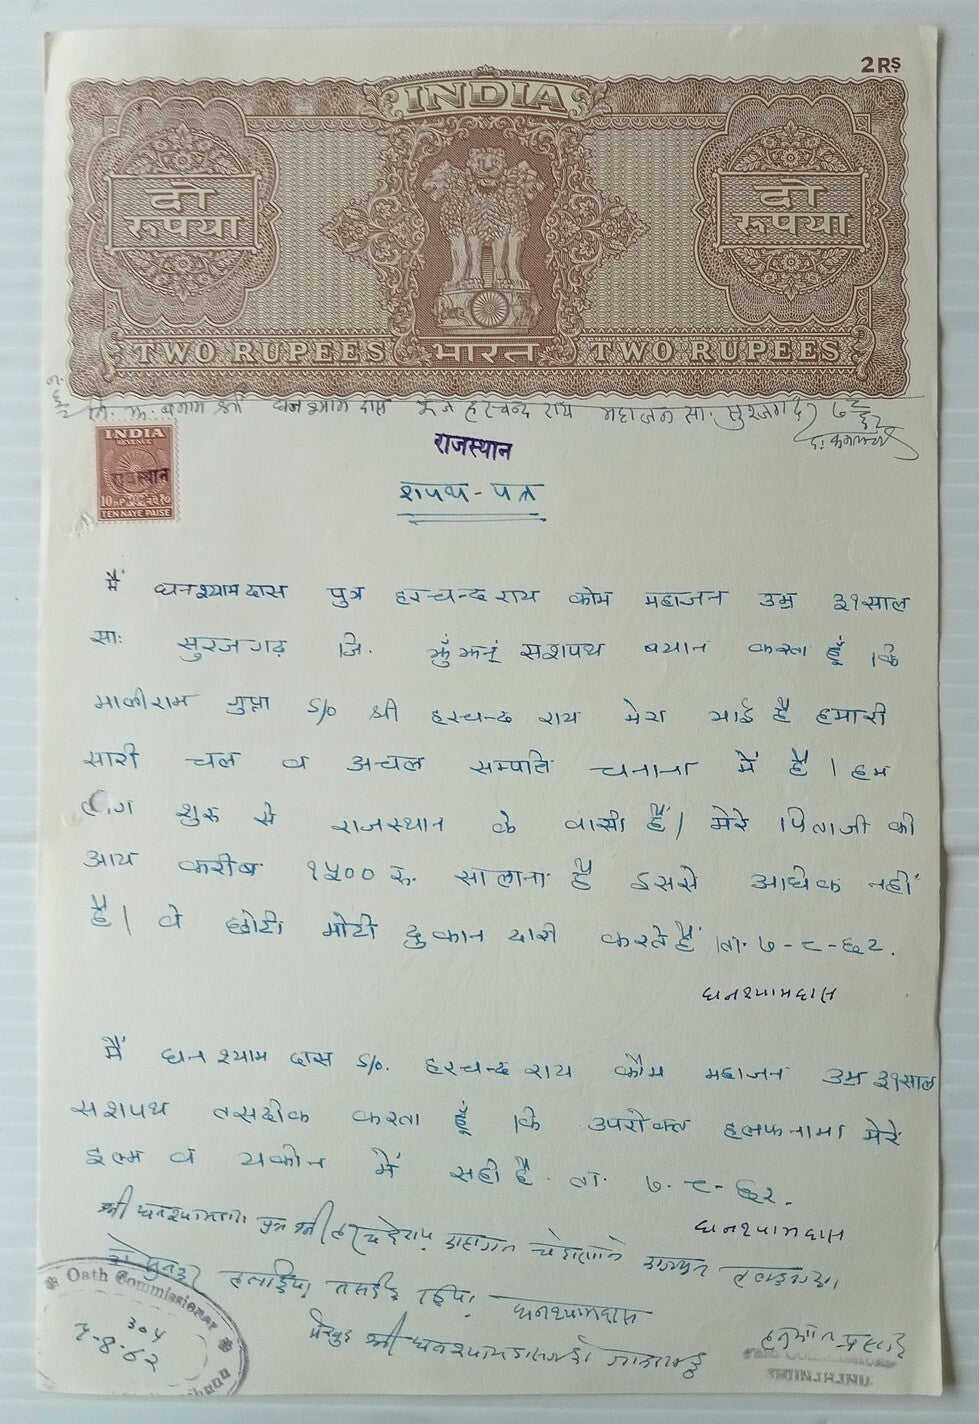 2 RS
INDIA
दो
रूपया
दो
रूपया
TWO RUPEES भारत TWO RUPEES
घनश्याम दास हरचन्द राय महाजन सा. सुरजगढ़
INDIA
REVENUE
राजस्थान
TEN NAYE PAISE
राजस्थान
शपथ - पत्र
मैं घनश्याम दास पुत्र हरचन्द राय कौम महाजन उम्र ३१ साल
सा: सुरजगढ़ जि. झुँझनूं सशपथ बयान करता हूँ कि
मालीराम गुप्ता S/o श्री हरचन्द राय मेरा भाई है हमारी
सारी चल व अचल सम्पति चनाना में है । हम
लोग शुरु से राजस्थान के वासी हैं । मेरे पिताजी की
आय करीब १५०० रु. सालाना है इससे अधिक नहीं
है । वे छोटी मोटी दुकान दारी करते हैं ता. ७-८-६२.
घनश्यामदास
मैं घनश्याम दास S/o. हरचन्द राय कौम महाजन उम्र ३१ साल
सशपथ तसदीक करता हूँ कि उपरोक्त हलफनामा मेरे
इल्म व यकीन में सही है. ता. ७-८-६२.
घनश्यामदास
श्री घनश्यामदास पुत्र श्री
घनश्यामदास
श्री घनश्यामदास
Oath Commissioner
304
7-8-62